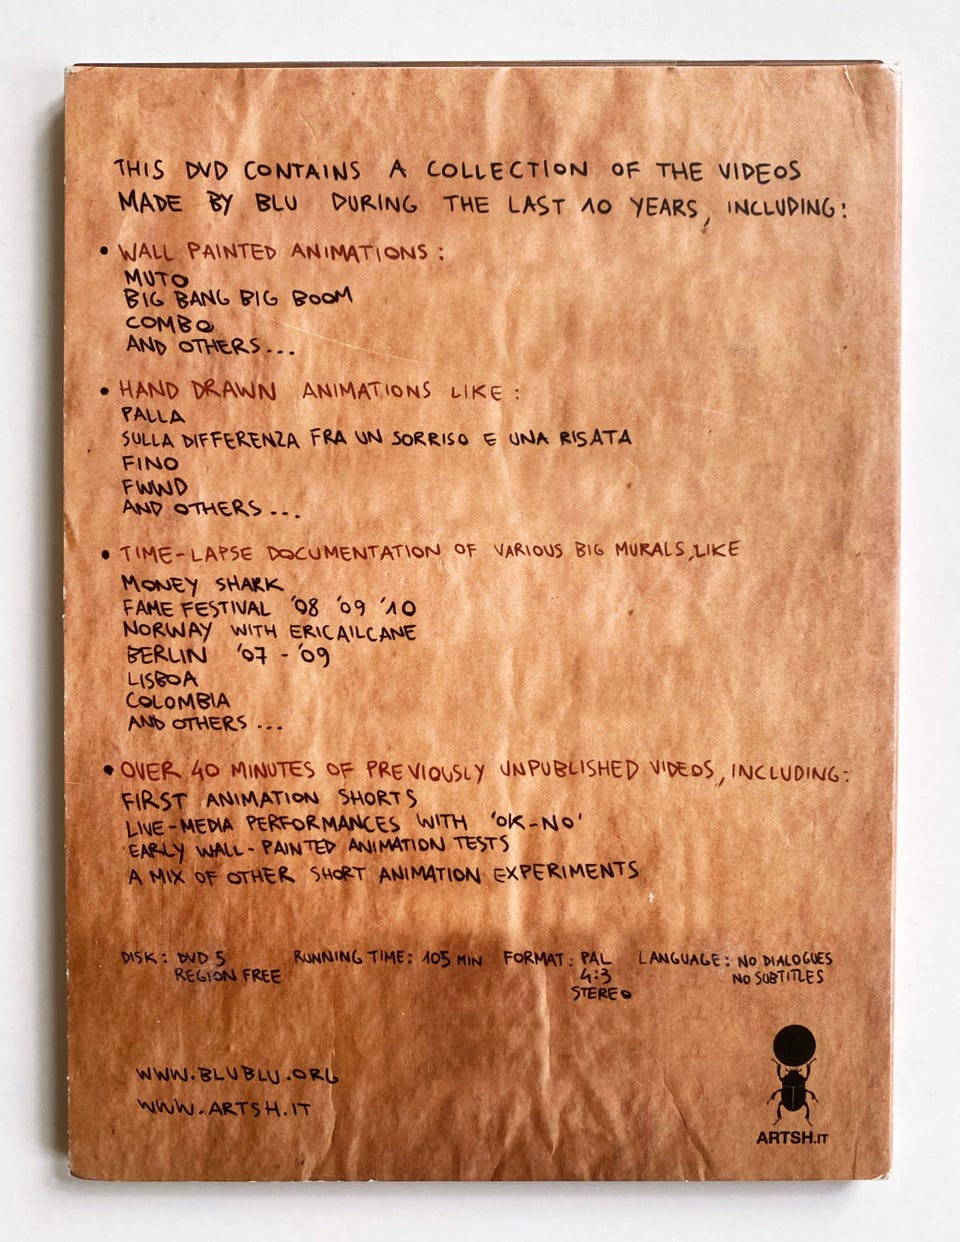 THIS DVD CONTAINS A COLLECTION OF THE VIDEOS
MADE BY BLU DURING THE LAST 10 YEARS, INCLUDING:
• WALL PAINTED ANIMATIONS:
MUTO
BIG BANG BIG BOOM
COMBO
AND OTHERS...
• HAND DRAWN ANIMATIONS LIKE:
PALLA
SULLA DIFFERENZA FRA UN SORRISO E UNA RISATA
FINO
FWWD
AND OTHERS...
• TIME-LAPSE DOCUMENTATION OF VARIOUS BIG MURALS, LIKE
MONEY SHARK
FAME FESTIVAL '08 '09 '10
NORWAY WITH ERICAILCANE
BERLIN '07 - '09
LISBOA
COLOMBIA
AND OTHERS...
• OVER 40 MINUTES OF PREVIOUSLY UNPUBLISHED VIDEOS, INCLUDING:
FIRST ANIMATION SHORTS
LIVE-MEDIA PERFORMANCES WITH 'OK-NO'
EARLY WALL-PAINTED ANIMATION TESTS
A MIX OF OTHER SHORT ANIMATION EXPERIMENTS
DISK: DVD 5 RUNNING TIME: 105 MIN FORMAT: PAL LANGUAGE: NO DIALOGUES
REGION FREE 4:3 NO SUBTITLES
STEREO
WWW.BLUBLU.ORG
WWW.ARTSH.IT
ARTSH.IT